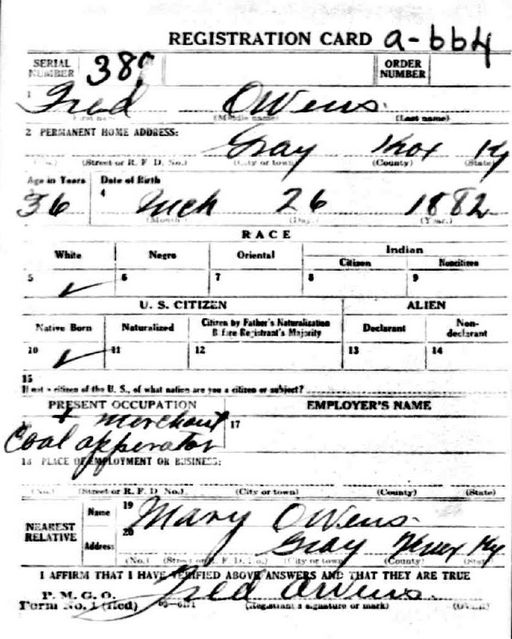 REGISTRATION CARD a-664
SERIAL NUMBER 389 ORDER NUMBER
1 Fred Owens
(First name) (Middle name) (Last name)
2 PERMANENT HOME ADDRESS:
Gray Knox Ky
(Street or R. F. D. No.) (City or town) (County) (State)
Age in Years Date of Birth
36 4 Mch 26 1882
(Month) (Day) (Year)
RACE
White Negro Oriental Indian
Citizen Noncitizen
5 ✓ 6 7 8 9
U. S. CITIZEN ALIEN
Native Born Naturalized Citizen by Father's Naturalization Before Registrant's Majority Declarant Non-declarant
10 ✓ 11 12 13 14
15
If not a citizen of the U. S., of what nation are you a citizen or subject?
PRESENT OCCUPATION EMPLOYER'S NAME
+ Merchant 17
Coal apperator
18 PLACE OF EMPLOYMENT OR BUSINESS:
(No.) (Street or R. F. D. No.) (City or town) (County) (State)
NEAREST RELATIVE Name 19 Mary Owens
Address 20 Gray Knox Ky
(No.) (Street or R. F. D. No.) (City or town) (County) (State)
I AFFIRM THAT I HAVE VERIFIED ABOVE ANSWERS AND THAT THEY ARE TRUE
P. M. G. O.
Form No. 1 (Red) Fred Owens
(Registrant's signature or mark) (OVER)